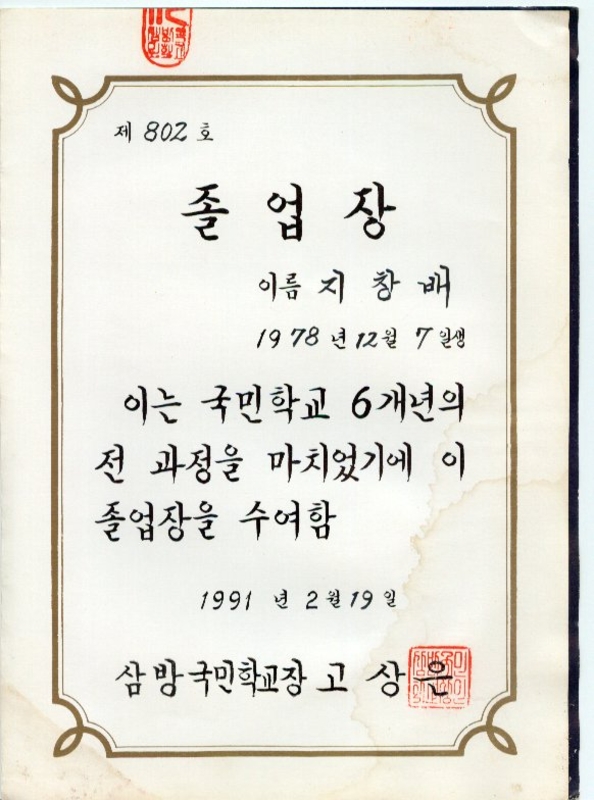 제 802 호
졸업장
이름 지 창 배
1978 년 12월 7 일생
이는 국민학교 6개년의
전 과정을 마치었기에 이
졸업장을 수여함
1991 년 2월 19 일
삼방국민학교장 고 상 은